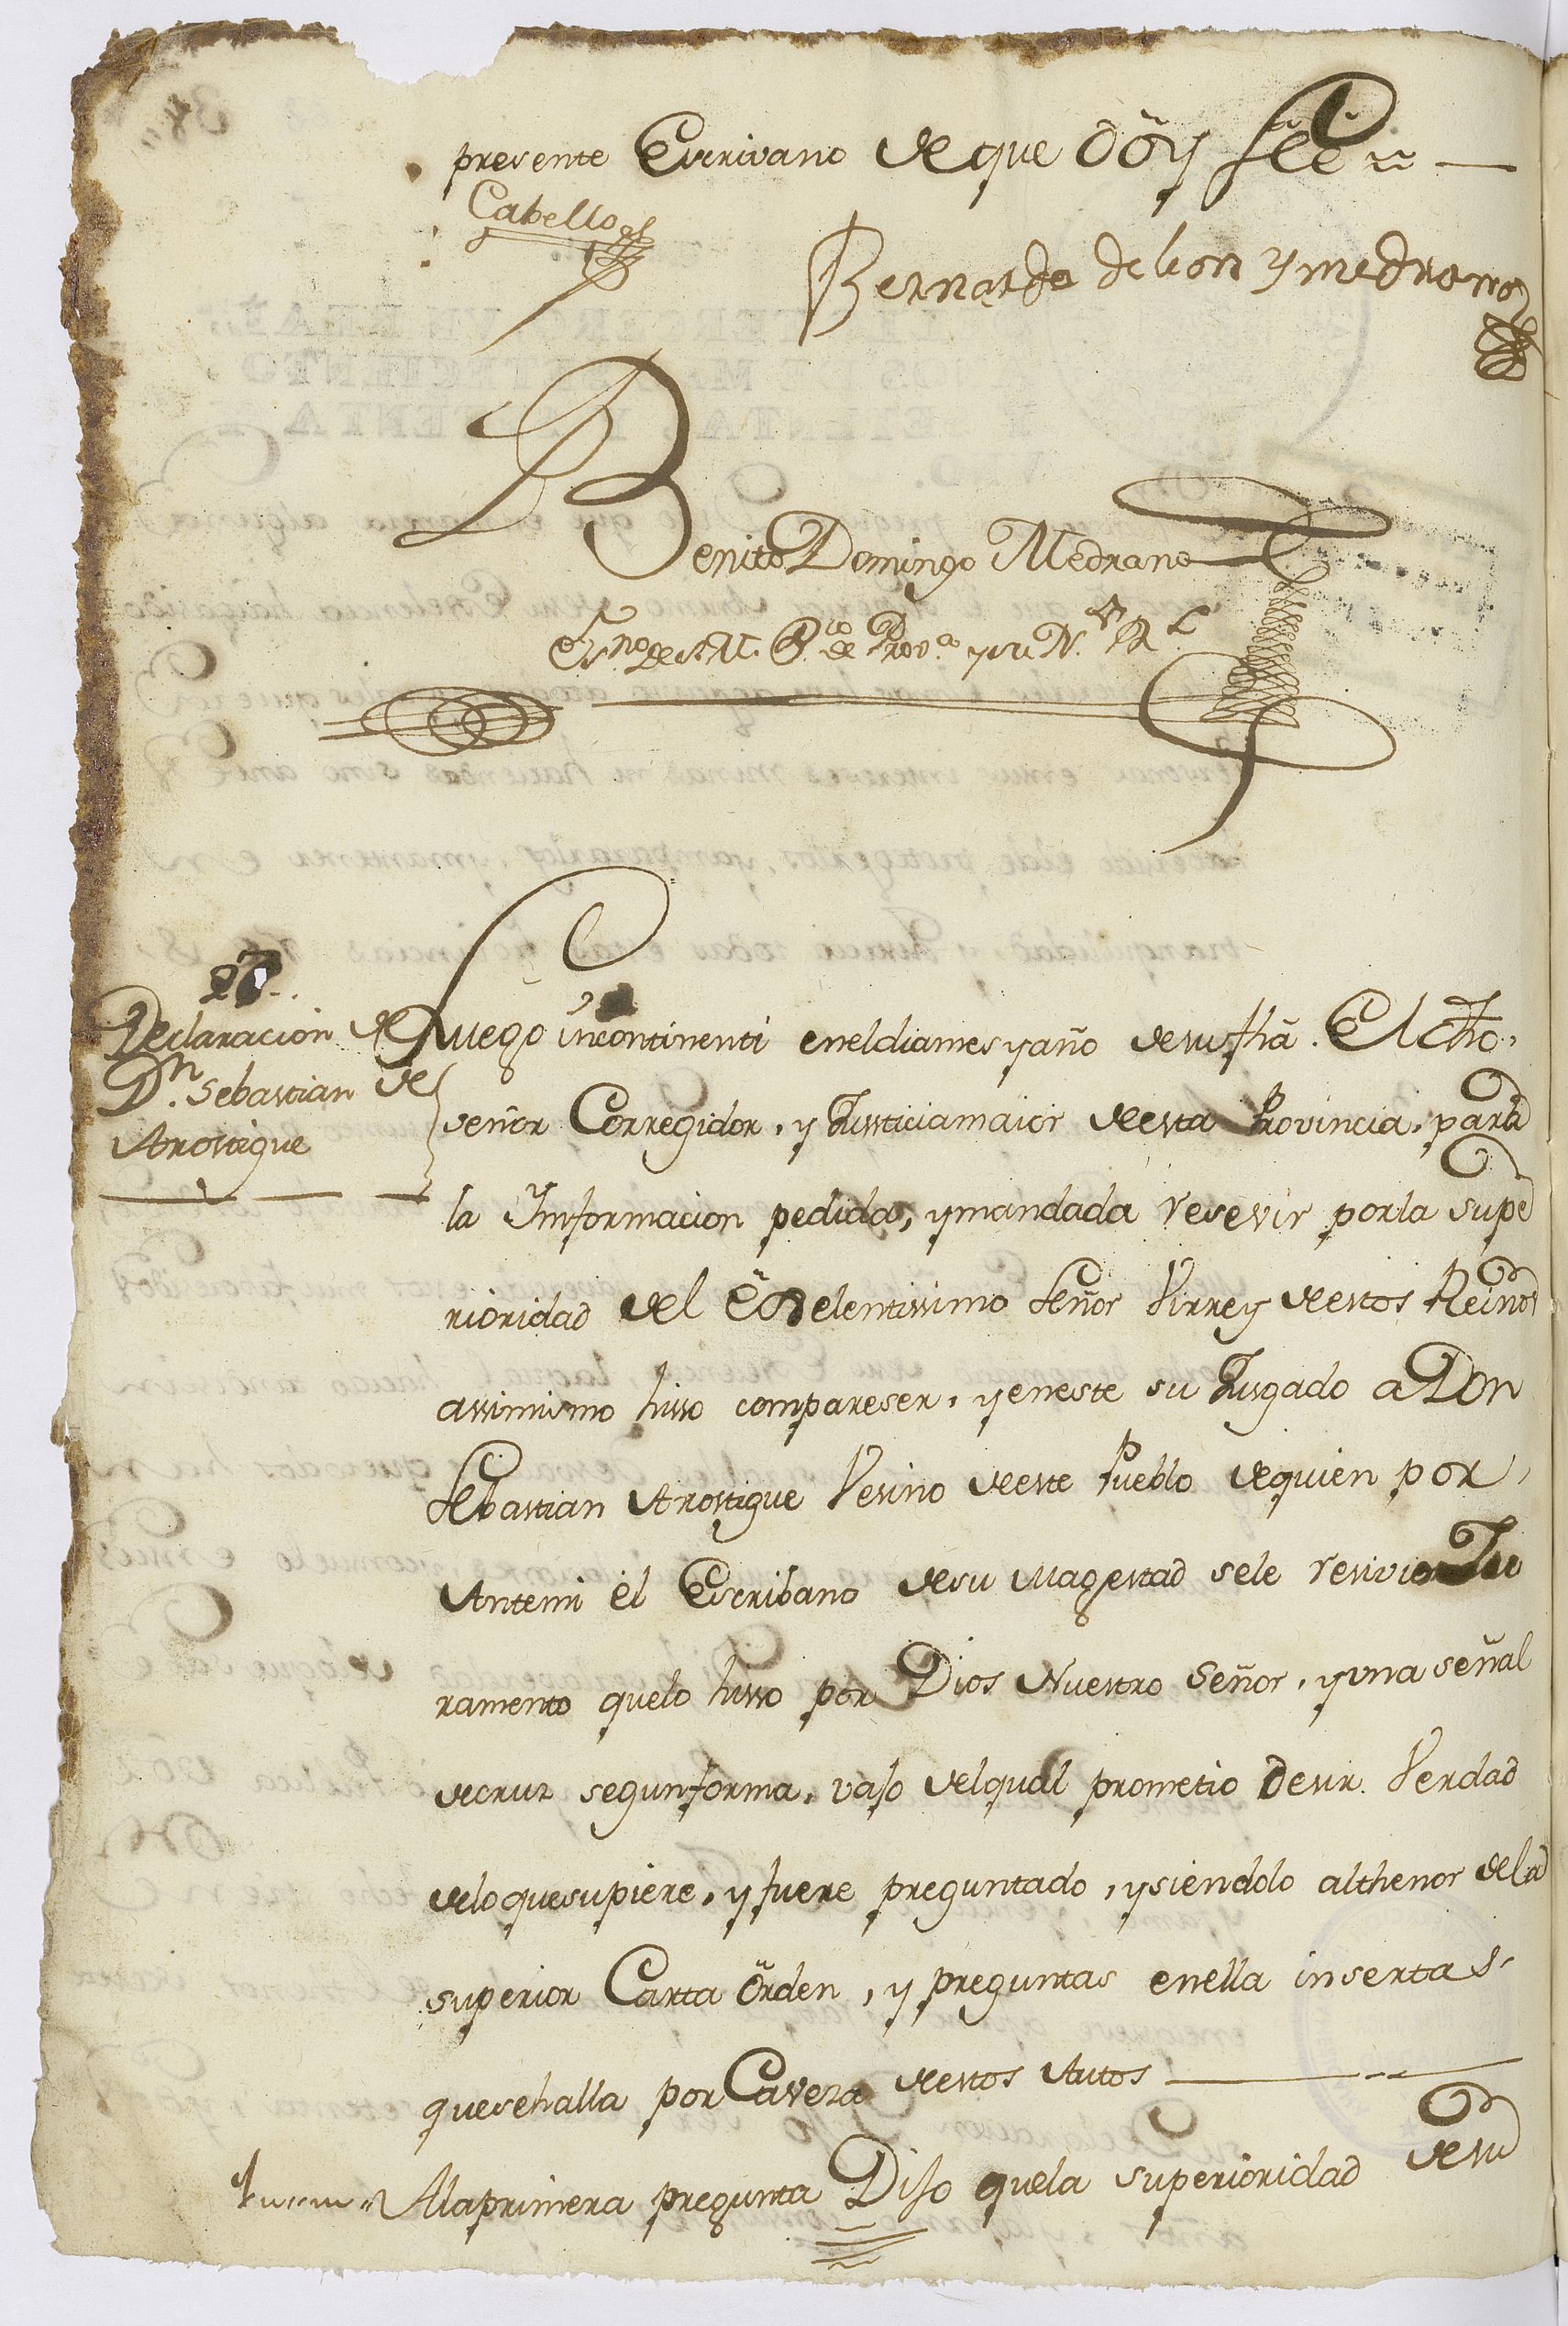 presente Escrivano deque doy feé
Cabello
Bernardo de leon y medrano
Benito Domingo Medrano
Esno. de S.M. Pco. de Prova. y su N.
27
Declaracion de
Dn. Sebastian de
Arostigue
Luego incontinenti eneldiamesyaño desu fhã. El dho.
señor Corregidor, y Justiciamaior desta Provincia, para
la Imformacion pedida, ymandada resevir porla supe
rioridad del Exselentissimo Señor Virrey destos Reinos
assimismo hisso compareser, yeneste su Jusgado a Don
Sebastian Arostigue Vesino deeste Pueblo dequien por,
Antemi el Escribano desu Magestad sele resivio Ju
ramento quelo hisso por Dios Nuestro Señor, yuna señal
decruz segunforma, vajo delqual prometio desir Verdad
deloquesupiere, yfuere preguntado, ysiendolo althenor dela
superior Carta Orden, y preguntas enella insertas,
quesehalla por Cavesa destos Autos
1 Alaprimera pregunta Dijo quela superioridad desu